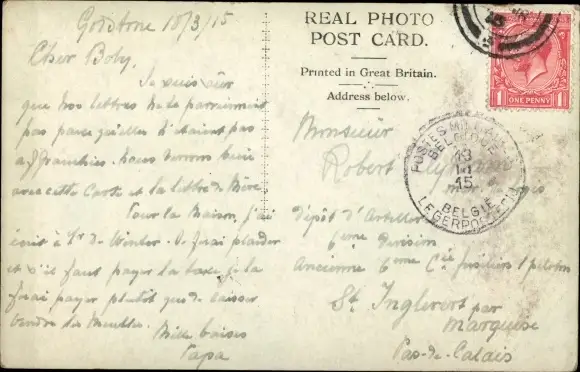 Godstone 10/3/15
Cher Boby,
Je suis sûr
que nos lettres ne te parviennent
pas parce qu'elles n'étaient pas
affranchies. Nous verrons bien
avec cette carte et la lettre de Mère.
Pour la Maison, j'ai
écrit à Mr de Winter. Je ferai plaider
et s'il faut payer la taxe je la
ferai payer plutôt que de laisser
vendre les Meubles.
Mille baises
Papa
REAL PHOTO
POST CARD.
Printed in Great Britain.
Address below.
Monsieur
Robert
Dépôt d'Artillerie
6ème Division
Ancienne 6ème Cie fusiliers 1 peloton
St Inglevert par
Marquise
Pas-de-Calais
1 ONE PENNY 1
POSTES MILITAIRES
BELGIQUE
13
III
15
BELGIË
LEGERPOSTERIJ